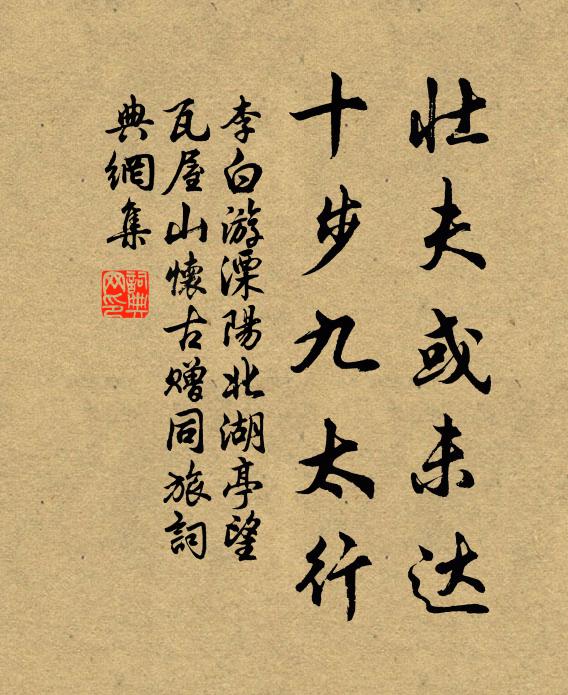 壮夫或未达
十步九太行
李白游溧陽北湖亭望
瓦屋山懷古贈同旅詞
典網集
詞典
网印